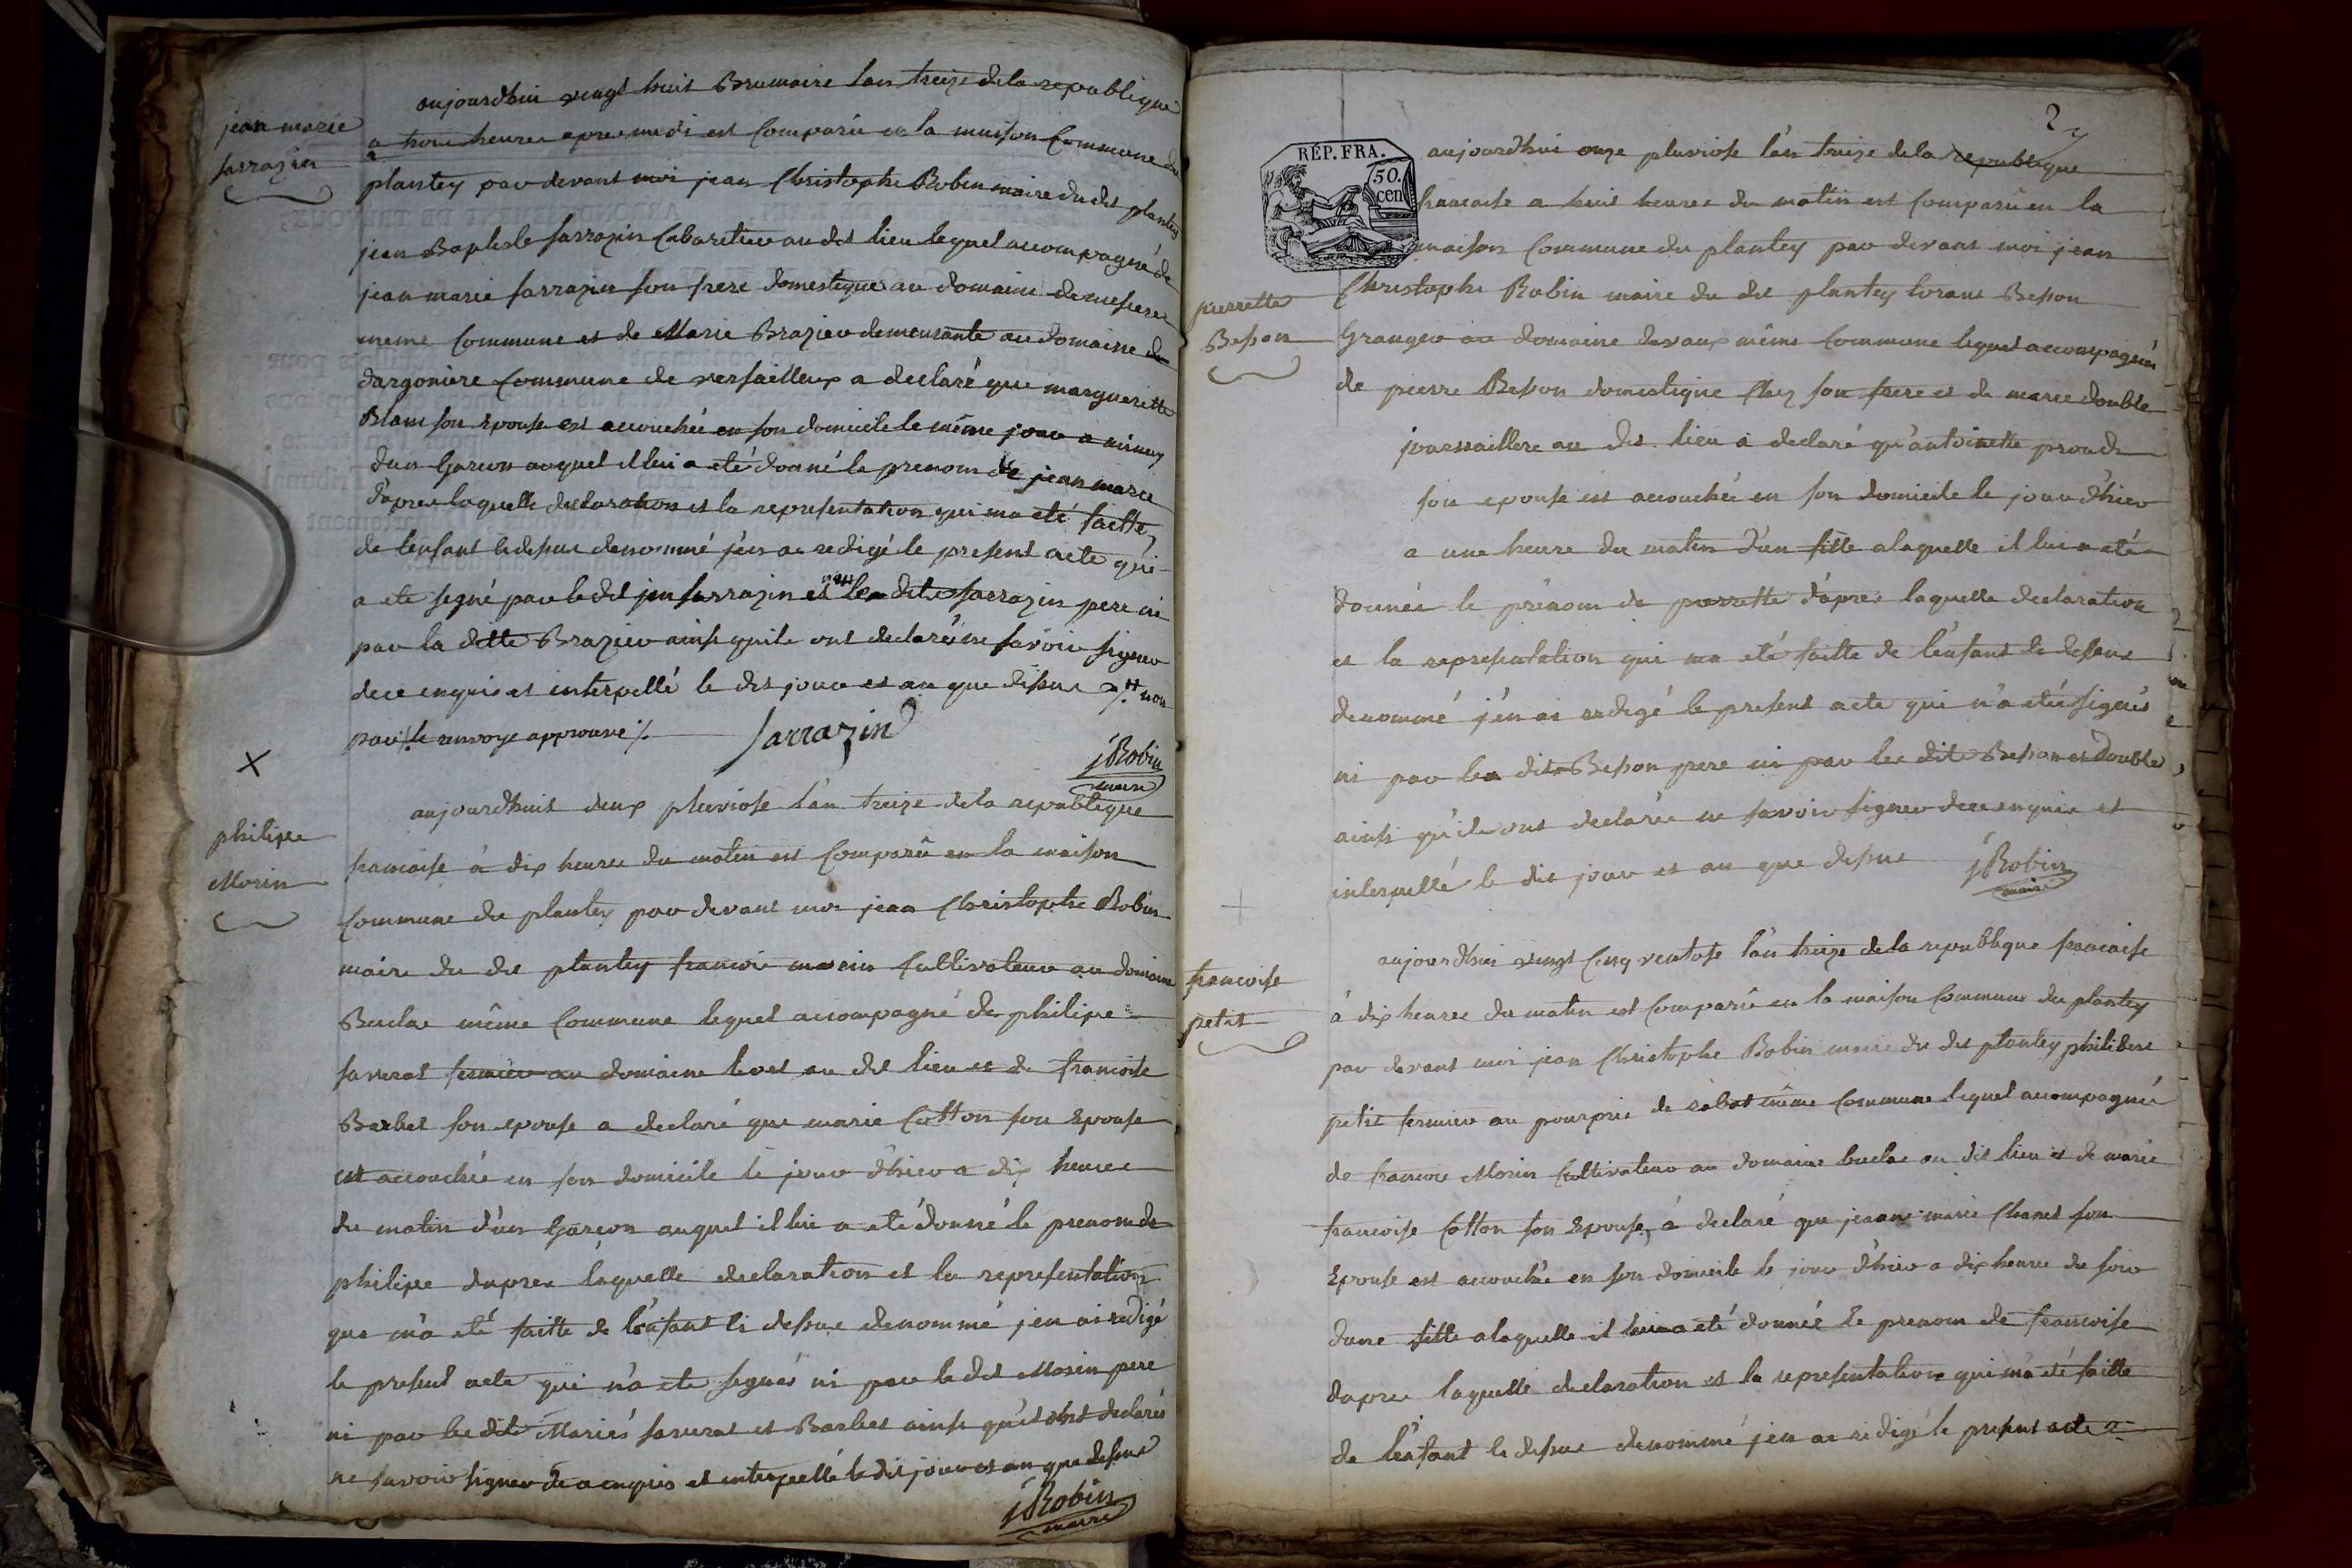 jean marie
sarrazin
aujourdhui vingt huit Brumaire lan treize dela republique
a trois heures apres midi est Comparu en la maison Commune du
plantey par devant moi jean Christophe Robin maire du dit plantey
jean Baptiste sarrazin Cabaretier au dit lieu lequel accompagné de
jean marie sarrazin son frere domestique au domaine
meme Commune et de Marie Brazier demeurante au domaine de
dargoniere Commune de versailleux a declaré que marguerette
Blanc son Epouse est accouchée en son domicile le même jour a minuy
dun Garcon auquel il lui a eté donné le prenom de jean marie
d'apres laquelle declaration et la representation qui ma eté faitte
de lenfant ci dessus denommé j'en ai redigé le present acte qui
a ete signé par le dit jean sarrazin et non le dit sarrazin pere ni
par la ditte Brazier ainsi quils ont declaré ne savoir signer
dece enquis et interpellé le dit jour et an que dessus non
par le renvoye approuvé
Sarrazin
jRobin
maire
philipe
Morin
aujourdhuit deux pluviose l'an treize dela republique
francaise à dix heures du matin est Comparû en la maison
Commune du plantey par devant moi jean Christophe Robin
maire du dit plantey francois morin Cultivateur au domaine
Beclae même Commune lequel accompagné de philipe
saverat fermier au domaine au dit lieu et de francoise
Barbet son epouse a declaré que marie Cotton son Epouse
est accouchée en son domicile le jour d'hier a dix heures
du matin d'un Garcon auquel il lui a eté donné le prenom de
philipe dapres laquelle declaration et la representation
que m'a eté faitte de l'enfant ci dessus denommé jen ai redigé
le present acte qui n'a ete signés ni par le dit Morin pere
ni par les dits Mariés saverat et Barbet ainsi qu'il ont declarés
ne savoir signer de a enquis et interpellé le dit jour et an que dessus
jRobin
maire
2
RÉP. FRA.
50.
cen
pierrette
Besson
aujourdhui onze pluviose l'an treize dela republique
francaise a huit heures du matin est Comparû en la
maison Commune du plantey par devant moi jean
Christophe Robin maire du dit plantey lorant Besson
Granger au domaine même Commune lequel accompagnés
de pierre Besson domestique Chez son frere et de marie double
au dit lieu a declaré qu'antoinette
son epouse est accouchée en son domicile le jour d'hier
a une heure du matin d'un fille a laquelle il lui a eté
donnée le prénom de perrette d'apres laquelle declaration
et la representation qui ma eté faitte de l'enfant ci dessus
denommé j'en ai redigé le present acte qui n'a etée signés
ni par le dit Besson pere ni par les dits Besson et double
ainsi qu'ils ont declarée ne savoir signer dece enquis et
interpellé le dit jour et an que dessus
jRobin
maire
francoise
petit
aujourdhui vingt Cinq ventose l'an treize dela republique francaise
à dix heures du matin est Comparû en la maison Commune du plantey
par devant moi jean Christophe Robin maire du dit plantey philibert
petit fermier au pourprie de même Commune lequel accompagné
de francois Morin Cultivateur au domaine beclae au dit lieu et de marie
francoise Cotton son Epouse, à declaré que jeanne marie son
Epouse est accouchée en son domicile le jour d'hier a dix heures du soir
dune fille a laquelle il lui a eté donnée le prenom de francoise
dapres laquelle declaration et la representation qui m'a eté faitte
de l'enfant ci dessus denommé jen ai redigé le present acte